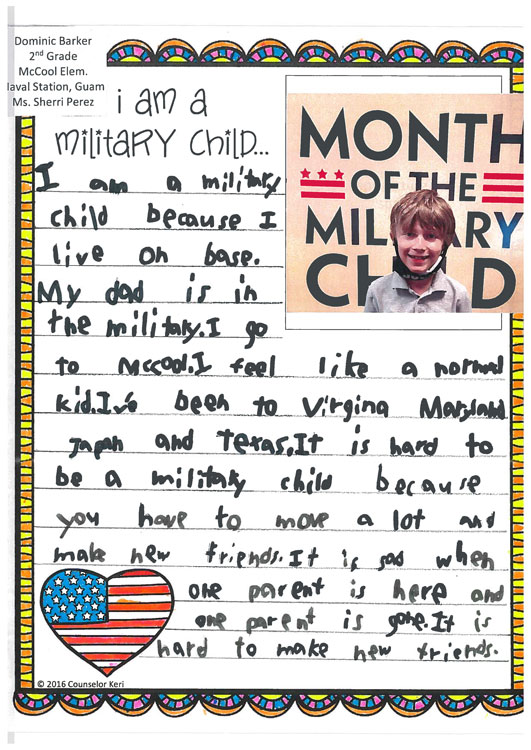 Dominic Barker
2nd Grade
McCool Elem.
laval Station, Guam
Ms. Sherri Perez
i am a
military child...
MONTH
OF THE
MILITARY
CHILD
I am a military
child because I
live on base.
My dad is in
the military. I go
to McCool. I feel like a normal
kid. I've been to Virgina Maryland
Japan and Texas. It is hard to
be a military child because
you have to move a lot and
make new friends. It is sad when
one parent is here and
one parent is gone. It is
hard to make new friends.
© 2016 Counselor Keri